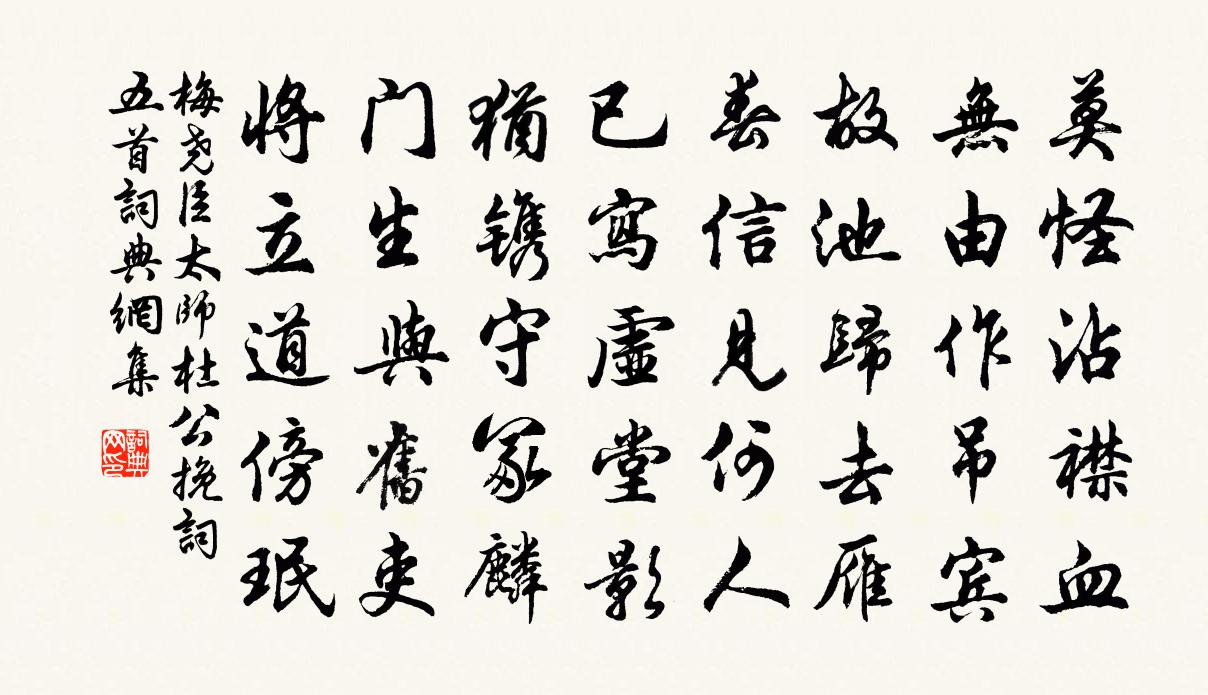 莫怪沾襟血
無由作吊宾
故池歸去雁
春信見何人
已寫虛堂影
猶镌守冢麟
门生與舊吏
将立道傍珉
梅尧臣太師杜公挽詞
五首詞典網集
詞典网印